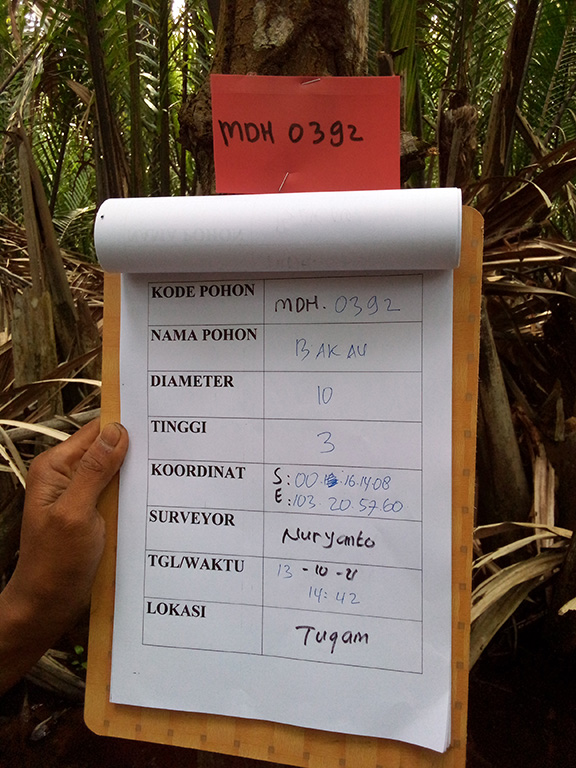 MDH 0392
KODE POHON
MDH. 0392
NAMA POHON
BAKAU
DIAMETER
10
TINGGI
3
KOORDINAT
S: 00. 16.14.08
E: 103. 20. 57. 60
SURVEYOR
Nuryanto
TGL/WAKTU
13 - 10 - 21
14: 42
LOKASI
Tugam